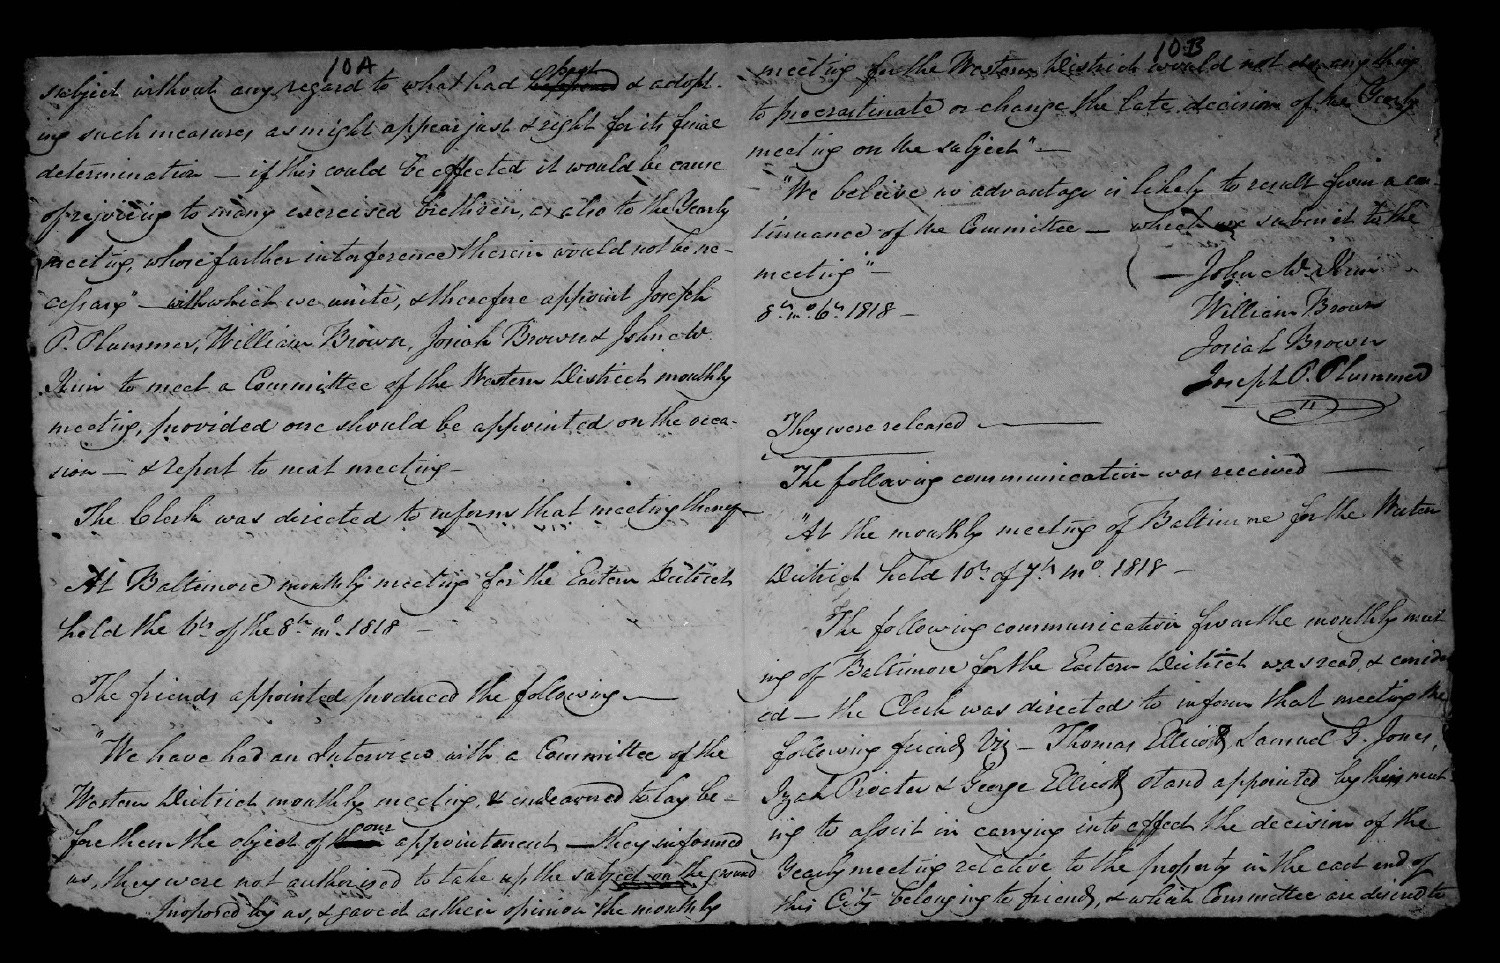 10A
subject without any regard to what had past happened & adopt-
ing such measures as might appear just & right for its final
determination — if this could be effected it would be cause
of rejoicing to many exercised brethren, as also to the Yearly
meeting, whose farther interference therein would not be ne-
cessary" — with which we unite, & therefore appoint Joseph
P. Plummer, William Brown, Josiah Brown & John W.
to meet a Committee of the Western District monthly
meeting, provided one should be appointed on the occa-
sion — & report to next meeting —
The Clerk was directed to inform that meeting thereof —
At Baltimore monthly meeting for the Eastern District
held the 6th of the 8th mo. 1818 —
The friends appointed produced the following —
"We have had an Interview with a Committee of the
Western District monthly meeting, & endeavored to lay be-
fore them the object of our appointment — they informed
us, they were not authorised to take up the subject on the ground
proposed by us, & gave it as their opinion the monthly
10B
meeting for the Western District would not do any thing
to procrastinate or change the late decision of the Yearly
meeting on the subject" —
"We believe no advantage is likely to result from a con-
tinuance of the Committee — which we submit to the
meeting" —
8th mo. 6th 1818 —
— John W.
William Brown
Josiah Brown
Joseph P. Plummer
They were released —
The following communication was received —
"At the monthly meeting of Baltimore for the Western
District held 10th of 7th mo. 1818 —
The following communication from the monthly meet
ing of Baltimore for the Eastern District was read, & consider
ed — the Clerk was directed to inform that meeting the
following friends Viz — Thomas Ellicott, Samuel G. Jones,
Izah Procter & George Ellicott stand appointed by this meet
ing to assist in carrying into effect the decision of the
Yearly meeting relative to the property in the east end of
this City belonging to friends, & which Committee are desired to